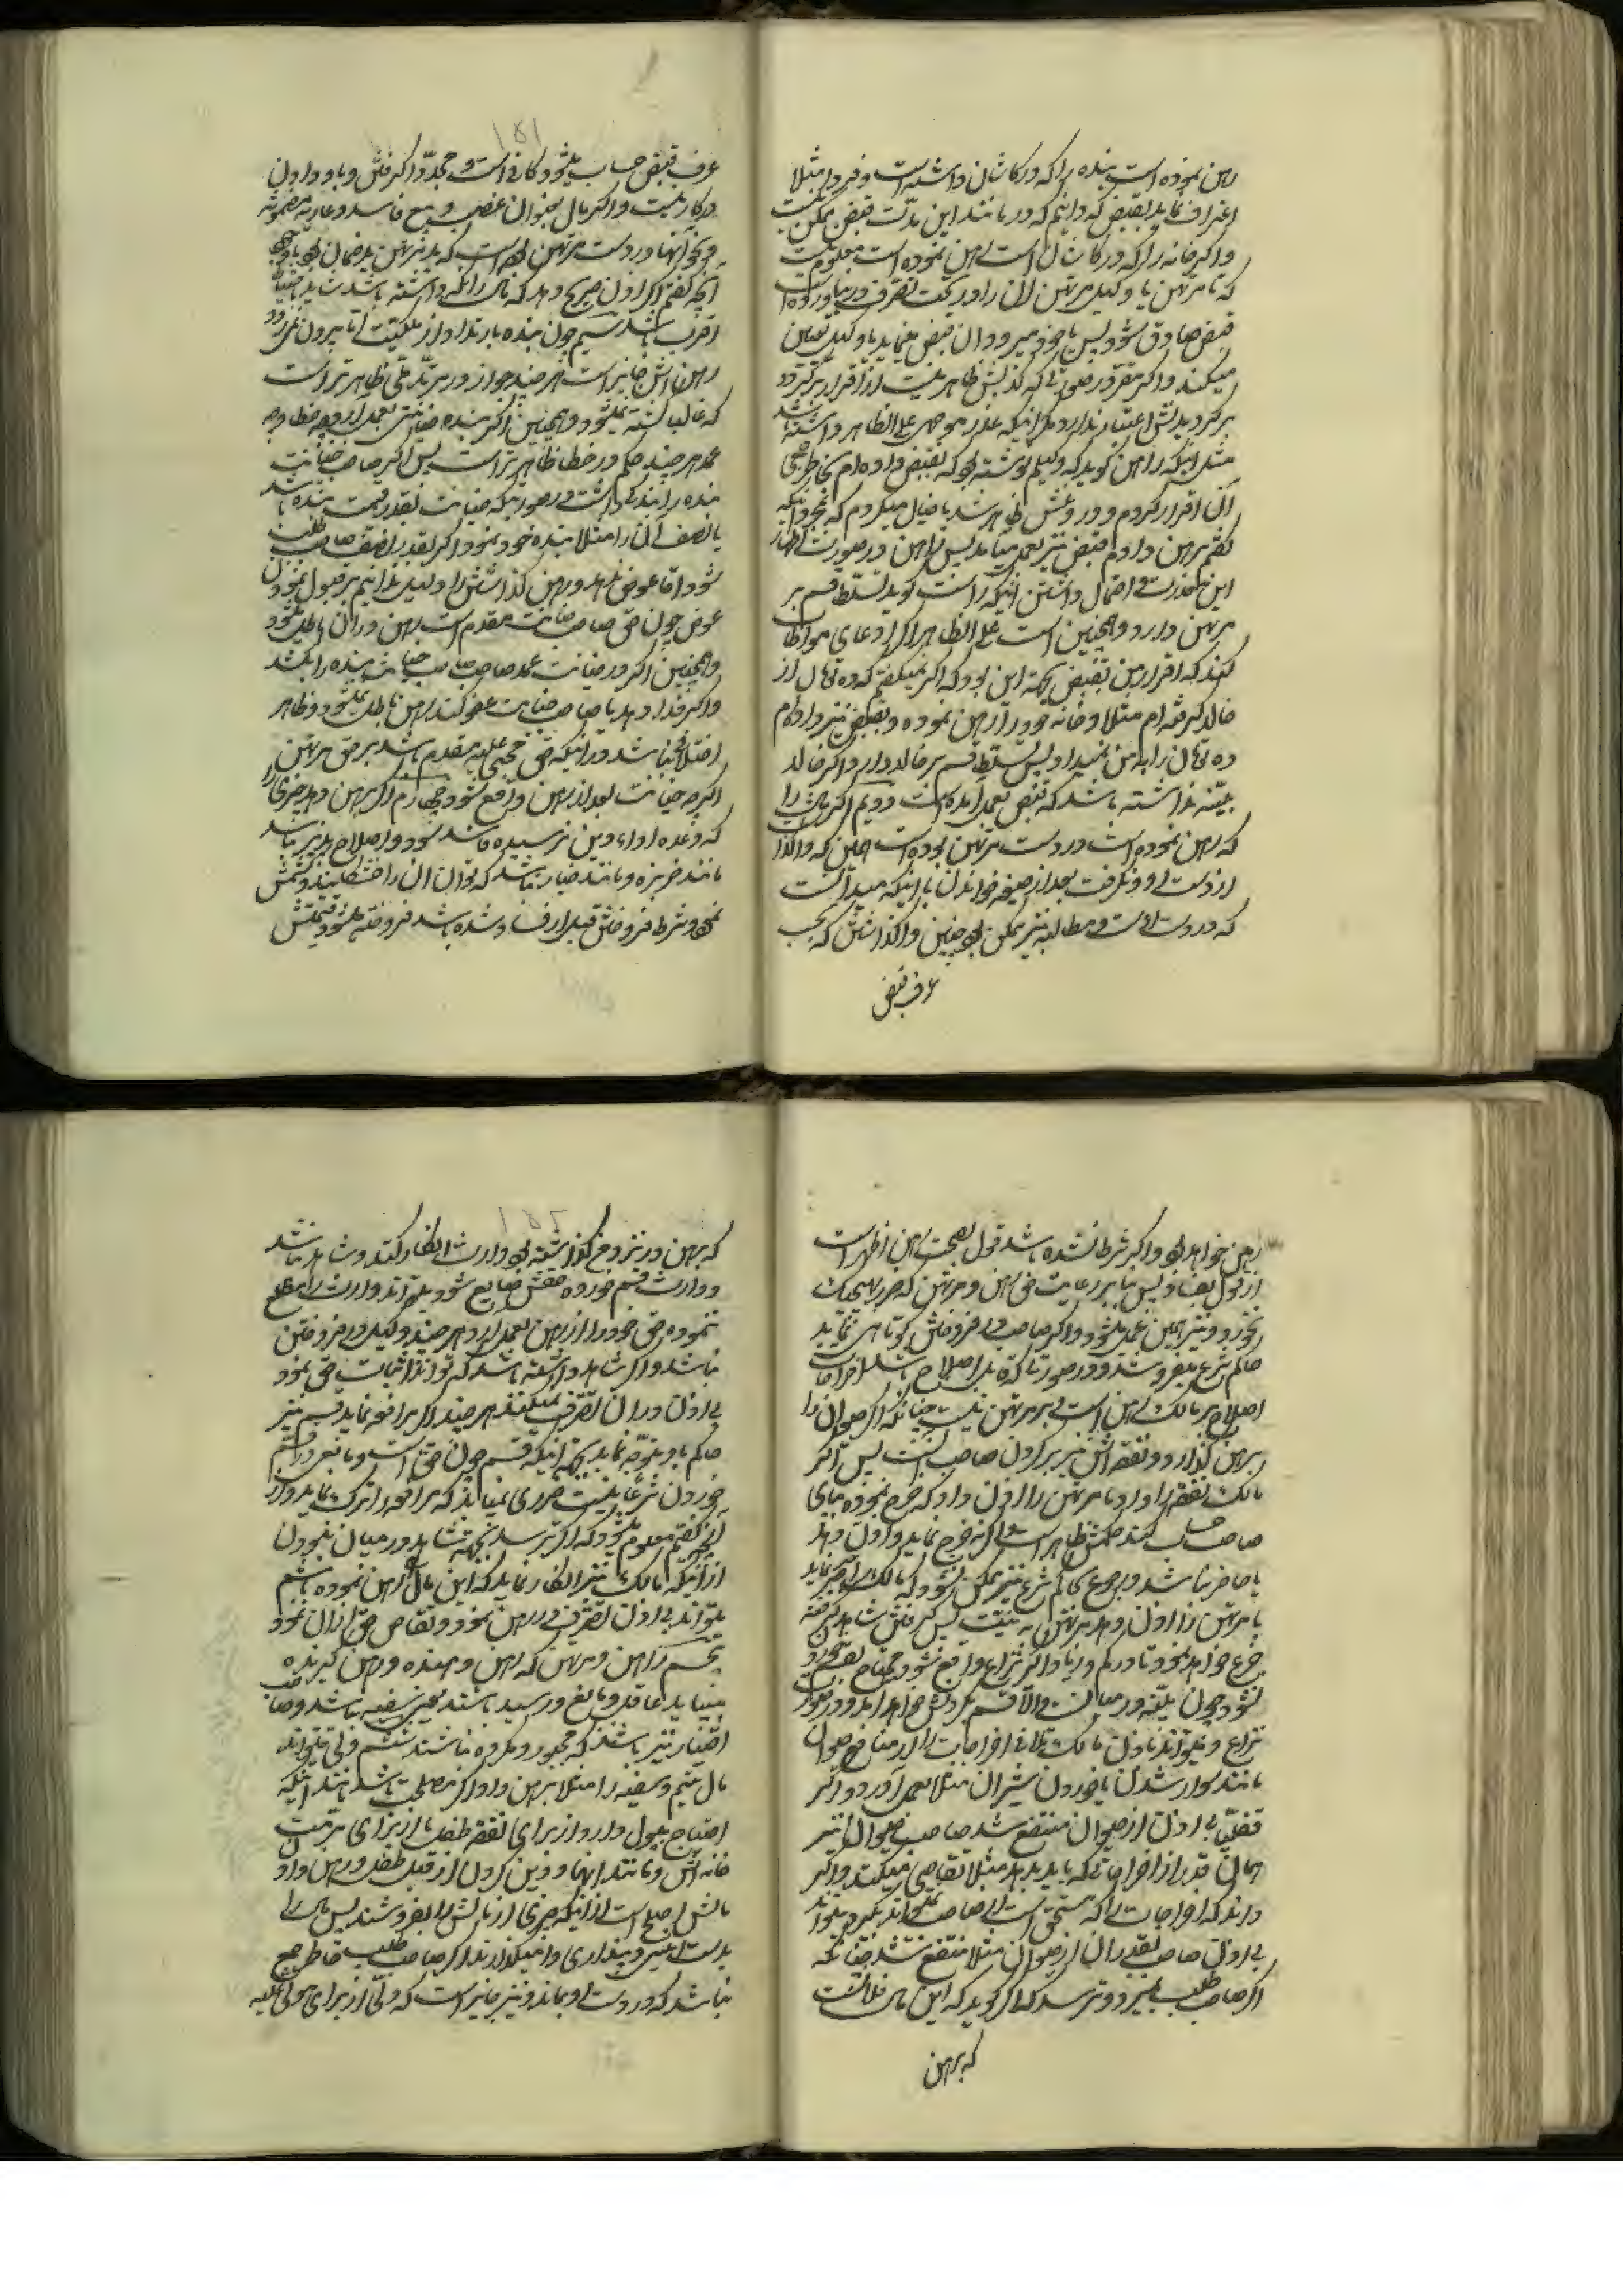 رهن نموده است بنده را که در کاشان داشته است و فردا مثلا
اعتراف نماید بقبض که دانیم که در مانند این مدّت قبض ممکن نیست
و اگر خانه را که در کاشان است رهن نموده است معلوم نیست
که تا مرتهن یا وکیل مرتهن آن را در تحت تصرف در نیاورده است
قبض صادق شود پس یا خود میرود آن قبض مینماید یا وکیل تعیین
میکند و اگر مقر در صورتی که کذبش ظاهر نیست از اقرار برگردد
برگردیدنش اعتبار ندارد مگر اینکه عذر موجهی علی الظاهر داشته باشد
مثل اینکه راهن گوید که وکیلم نوشته بود که بقبض داده ام بخاطر جمعی
آن اقرار کردم و دروغش ظاهر شد یا خیال میکردم که بمجرد اینکه
گفتم برهن دادم قبض نیز بعمل میاید پس راهن در صورت اظهار
این عذرت و احتمال داشتن اینکه راست گوید تسلط قسم بر
مرتهن دارد و همچنین است علی الظاهر اگر ادعای مواطاة
کند که اقرار من بقبض بجهة این بود که اگر نمیگفتم که ده تومان از
خالد گرفته ام مثلا و خانه خود را رهن نموده و بقبض نیز داده ام
ده تومان را به من نمیداد پس تسلط قسم بر خالد دارم و اگر خالد
بیّنه نداشته باشد که قبض بعمل آمده است دویم اگر مالی را
که رهن نموده است در دست مرتهن بوده است همین که واگذاشت
از دست او و نگرفت بعد از صیغه خواندن با اینکه میدانست
که در دست اوست و مطالبه نیز ممکن بود چنین واگذاشتن که بحسب
عرف قبض
عرف قبض حساب میشود کافی است و مجدّدا گرفتن و باو دادن
در کار نیست و اگر مال بعنوان غصب و بیع فاسد و عاریه مضمونه
و نحو آنها در دست مرتهن بوده است که ید مرتهن ید ضمان بود با وجود
آنچه گفتم اگر اذن صریح دهد که مال را نگه داشته باشد شاید باحتیاط
اقرب باشد سیم چون بنده بارتداد از ملکیت آقا بیرون نمیرود
رهن آنش جایز است هر چند جواز در مرتد ملی ظاهرتر است
که غالبا کشته نمیشود و همچنین اگر بنده جنایتی بعمل آورد چه خطا و چه
عمد هر چند حکم در خطا ظاهرتر است پس اگر صاحب جنایت
بنده را بندگی داشت در صورتیکه جنایت بقدر قیمت بنده باشد
یا نصف آن را مثلا بنده خود نمود اگر بقدر نصف صاحب طلب
شود اما عوض نمیدهد و رهن گذاشتن را دلیل ندانیم بر قبول نمودن
عوض چون حق صاحب جنایت مقدم است رهن در آن باطل میشود
و همچنین اگر در جنایت عمد صاحب جنایت بنده را بکشد
و اگر فدا دهد یا صاحب جنایت عفو کند رهن باطل نمیشود و ظاهر
اختلاف نباشد در اینکه حق مجنی علیه مقدم باشد بر حق مرتهن
اگر چه جنایت بعد از رهن واقع شود چهارم اگر برهن دهد چیزی را
که وعده اداء دین نرسیده فاسد شود و اصلاح پذیر نباشد
مانند خربزه و مانند خیار نباشد که توان آن را خشکانید و کشمش
نمود و شرط فروختن قبل از فساد شده باشد فروخته میشود و قیمتش
رهن خواهد بود و اگر شرط نشده باشد قول بصحت رهن اظهر است
از قول بفساد پس بنا بر رعایت حق راهن و مرتهن که ضرر بهیچیک
نخورد و نیز همین عمل میشود و اگر صاحب در فروختن کوتاهی نماید
حاکم شرع میفروشد و در صورتی که قابل اصلاح باشد اخراجات
اصلاح بر مالک رهن است و بر مرتهن نیست چنانکه اگر حیوان را
برهن گذارد و نفقه اش نیز بر گردن صاحب آنست پس اگر
مالک نفقه را داد یا مرتهن را اذن داد که خرج نموده بپای
صاحب حساب کند حکمش ظاهر است و اگر نه خرج نماید و اذن دهد
یا حاضر نباشد و رجوع بحاکم شرع نیز ممکن نشود که مالک را جبر نماید
یا مرتهن را اذن دهد مرتهن به نیّت پس گرفتن شاهد گرفته
خرج خواهد نمود تا در کم و زیاد اگر نزاع واقع شود محتاج بقسم خوردن
نشود چون بیّنه در میان است و الا قسم بگردنش خواهد آمد و در صورت
نزاع و میتواند باذن مالک تلافی اخراجات را از منافع حیوان
مانند سوار شدن یا خوردن شیر آن مثلا بعمل آورد و اگر
فضلیّا بی اذن از حیوان منتفع شد صاحب حیوان نیز
همان قدر از اخراجاتی که باید بدهد مثلا تقاصی میکند و اگر
داند که اخراجات را که مستحق است از صاحب نمیتواند بگیرد میتواند
بی اذن صاحب بقدر آن از حیوان مثلا منتفع شد چنانکه
اگر صاحب طلب بمیرد و ترسد که اگر گوید که این مال فلانست
که برهن
که برهن در نزد من گذاشته بود وارث انکار کند و شاهد نباشد
و وارث قسم خورده حقش ضایع شود میتواند وارث را مطلع
ننموده حق خود را از رهن بعمل آورد هر چند وکیل در فروختن
نباشد و اگر شاهد داشته باشد که تواند اثبات حق نمود
بی اذن در آن تصرف نمیکند هر چند اگر مرافعه نماید قسم نیز
حاکم باو متوجه نماید بجهة اینکه قسم چون حق است و مانعی در قسم
خوردن شرعا نیست ضرری نمیباشد که مرافعه را ترک نماید و از
آنچه گفتم معلوم میشود که اگر ترسد بجهة شاهد در میان نبودن
از اینکه مالک نیز انکار نماید که این مال را رهن نموده باشم
میتواند بی اذن تصرف در رهن نمود و تقاص حق از آن نمود
پنجم راهن و مرتهن که رهن دهنده و رهن گیرنده
میباید عاقل و بالغ و رسید باشند یعنی سفیه نباشد و صاحب
اختیار نیز باشند که مجبور و مکروه نباشند ششم ولی میتواند
مال یتیم و سفیه را مثلا برهن داد اگر مصلحت باشد مانند اینکه
احتیاج بپول دارد از برای نفقه طفل یا از برای مرمت
خانه اش و مانند اینها و دین کردن از قبل طفل و رهن دادن
مالش اصلح است از اینکه چیزی از مالش را بفروشند پس مال را
بدست امینی و دینداری وا میگذارند اگر صاحب طلب خاطر جمع
نباشد که در دست او بماند و نیز جایز است که ولی از برای مولی علیه